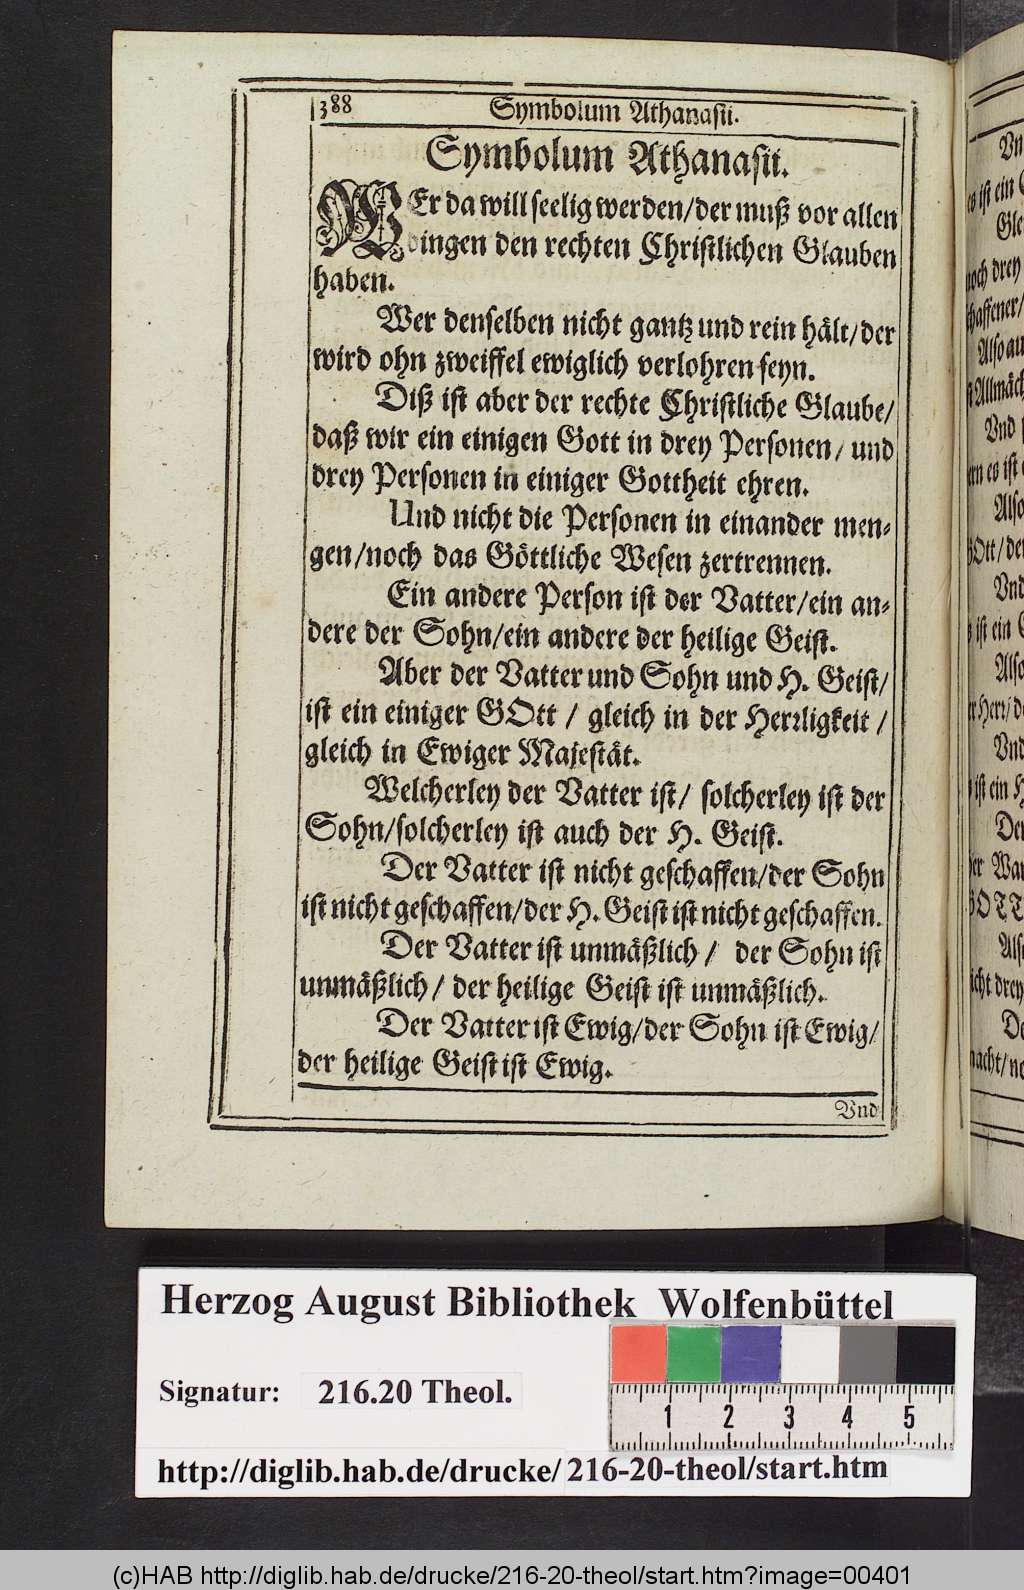 388 Symbolum Athanasii.
Symbolum Athanasii.
WEr da will seelig werden/der muß vor allen
dingen den rechten Christlichen Glauben
haben.
Wer denselben nicht gantz und rein hält/der
wird ohn zweiffel ewiglich verlohren seyn.
Diß ist aber der rechte Christliche Glaube/
daß wir ein einigen Gott in drey Personen/ und
drey Personen in einiger Gottheit ehren.
Und nicht die Personen in einander men-
gen/noch das Göttliche Wesen zertrennen.
Ein andere Person ist der Vatter/ein an-
dere der Sohn/ein andere der heilige Geist.
Aber der Vatter und Sohn und H. Geist/
ist ein einiger GOtt / gleich in der Herrligkeit /
gleich in Ewiger Majestät.
Welcherley der Vatter ist/ solcherley ist der
Sohn/solcherley ist auch der H. Geist.
Der Vatter ist nicht geschaffen/der Sohn
ist nicht geschaffen/der H. Geist ist nicht geschaffen.
Der Vatter ist unmäßlich / der Sohn ist
unmäßlich/ der heilige Geist ist unmäßlich.
Der Vatter ist Ewig/der Sohn ist Ewig/
der heilige Geist ist Ewig.
Vnd
Herzog August Bibliothek Wolfenbüttel
Signatur: 216.20 Theol.
1 2 3 4 5
http://diglib.hab.de/drucke/216-20-theol/start.htm
(c)HAB http://diglib.hab.de/drucke/216-20-theol/start.htm?image=00401